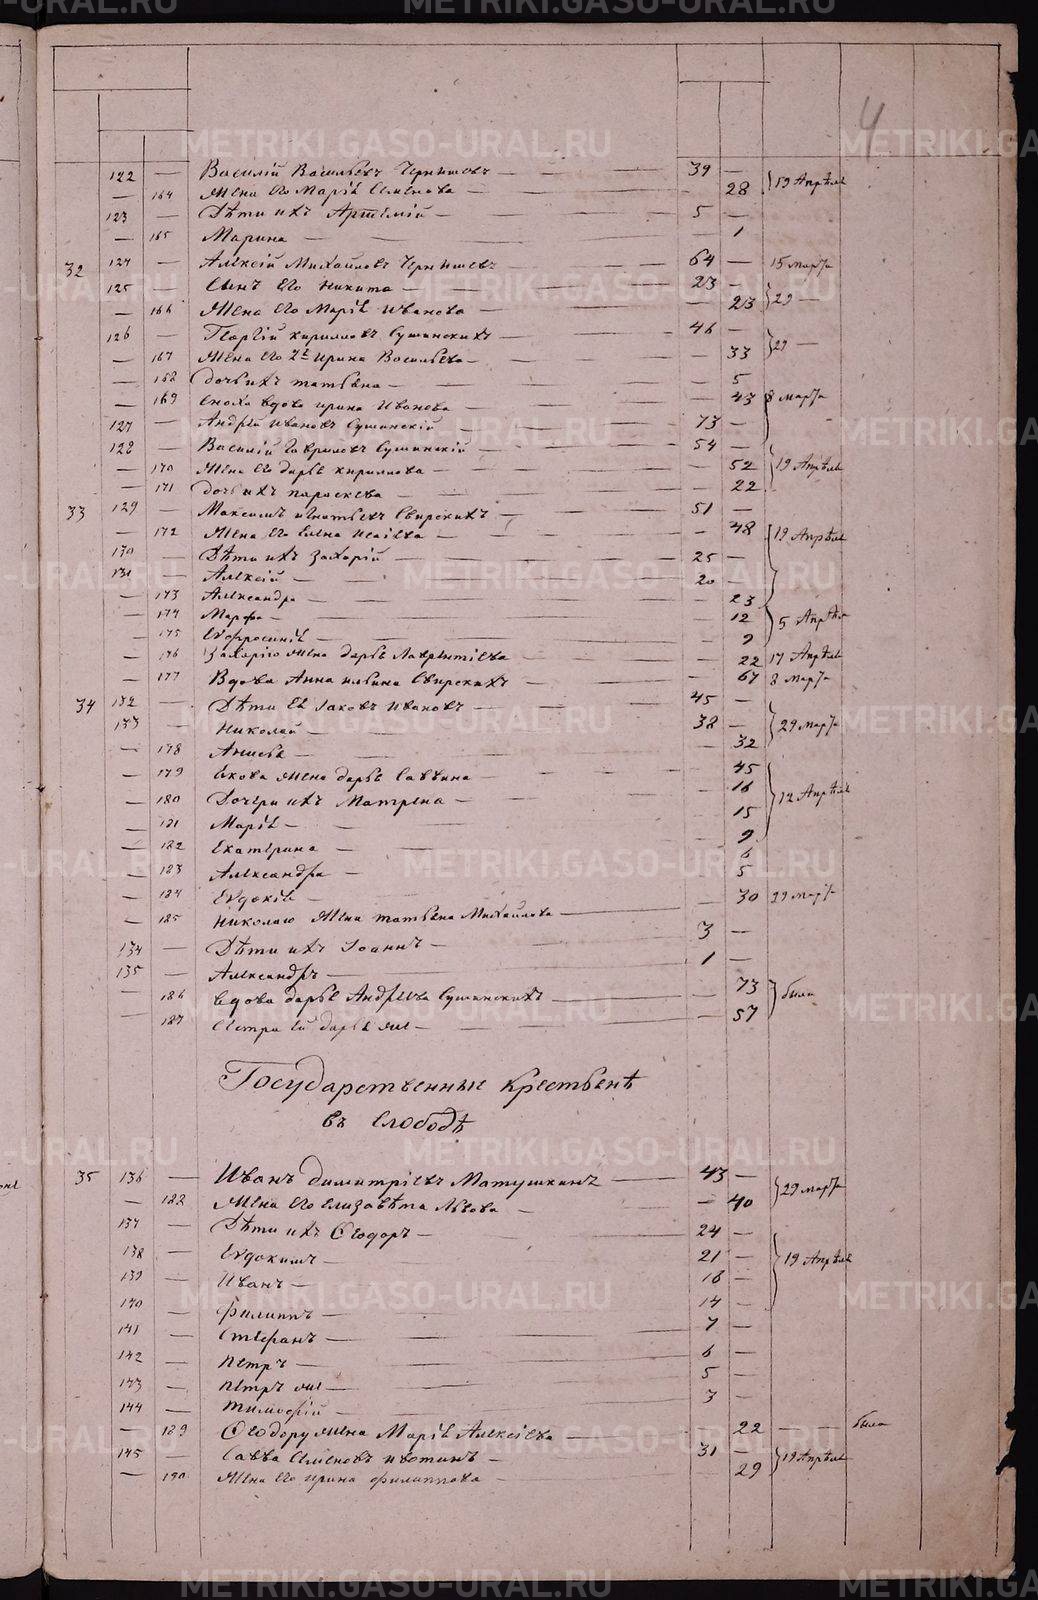 4
122 — Василій Васильевъ Чернышевъ — 39 —
— 164 Жена его Марія Семенова — — 28 } 19 Апрѣля
123 — Дѣти ихъ Артемій — 5 —
— 165 Марина — — 1
32 124 — Алексій Михайловъ Чернышевъ — 64 — 15 марта
125 — Сынъ его Никита — 23 —
— 166 Жена его Марія Иванова — — 23 } 29 —
126 — Георгій Кирилловъ Сушинскихъ — 46 —
— 167 Жена его 2я Ирина Васильева — — 33 } 29 —
— 168 Дочь ихъ Татьяна — — 5
— 169 Сноха вдова Ирина Иванова — — 43 8 марта
127 — Андрей Ивановъ Сушинскій — 73 —
128 — Василій Гавриловъ Сушинскій — 54 —
— 170 Жена его Дарья Кириллова — — 52 } 19 Апрѣля
— 171 Дочь ихъ Параскева — — 22
33 129 — Максимъ Игнатьевъ Свирскихъ — 51 —
— 172 Жена его Елена Исаіева — — 48 } 19 Апрѣля
130 — Дѣти ихъ Захарій — 25 —
131 — Алексій — 20 —
— 173 Александра — — 23
— 174 Марфа — — 12 } 5 Апрѣля
— 175 Евфросинія — — 9
— 176 Захарію жена Дарья Лаврентіева — — 22 17 Апрѣля
— 177 Вдова Анна Ильина Свирскихъ — — 67 8 марта
34 132 — Дѣти ея Іаковъ Ивановъ — 45 —
133 — Николай — 38 — } 29 марта
— 178 Анисья — — 32
— 179 Іакова жена Дарья Саввина — — 45
— 180 Дочери ихъ Матрена — — 16 } 12 Апрѣля
— 181 Марія — — 15
— 182 Екатерина — — 9
— 183 Александра — — 6
— 184 Евдокія — — 5
— 185 Николаю жена Татьяна Михайлова — — 30 29 марта
134 — Дѣти ихъ Іоаннъ — 3 —
135 — Александръ — 1 —
— 186 Вдова Дарья Андреева Сушинскихъ — — 73 } была
— 187 Сестра ей Дарья же — — 57
Государственные крестьянѣ
въ Слободѣ
35 136 — Иванъ Димитріевъ Матушкинъ — 43 —
— 188 Жена его Елизавѣта Львова — — 40 } 29 марта
137 — Дѣти ихъ Ѳеодоръ — 24 —
138 — Евдокимъ — 21 — } 19 Апрѣля
139 — Иванъ — 16 —
140 — Филиппъ — 14 —
141 — Стефанъ — 7 —
142 — Петръ — 6 —
143 — Петръ же — 5 —
144 — Тимофій — 3 —
— 189 Ѳеодору жена Марія Алексіева — — 22 — была
145 — Савва Семеновъ — 31 —
— 190 Жена его Ирина Филиппова — — 29 } 19 Апрѣля
METRIKI.GASO-URAL.RU